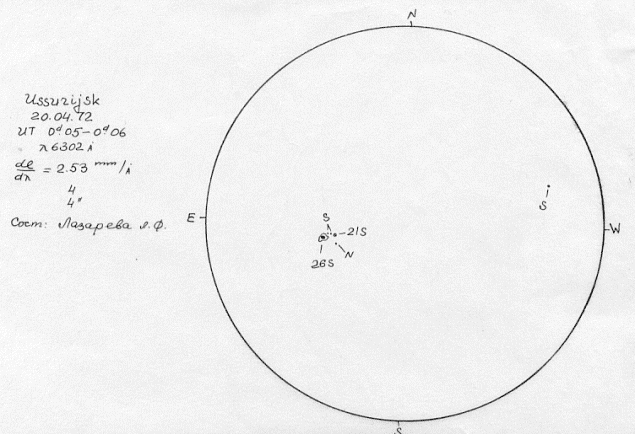 Ussurijsk
20.04.72
UT 0ᵈ.05–0ᵈ.06
λ 6302 Å
dl/dλ = 2.53 mm/Å
4
4"
Сост: Лазарева Л.Ф.
N
E
W
S
S
S
-21S
N
26S